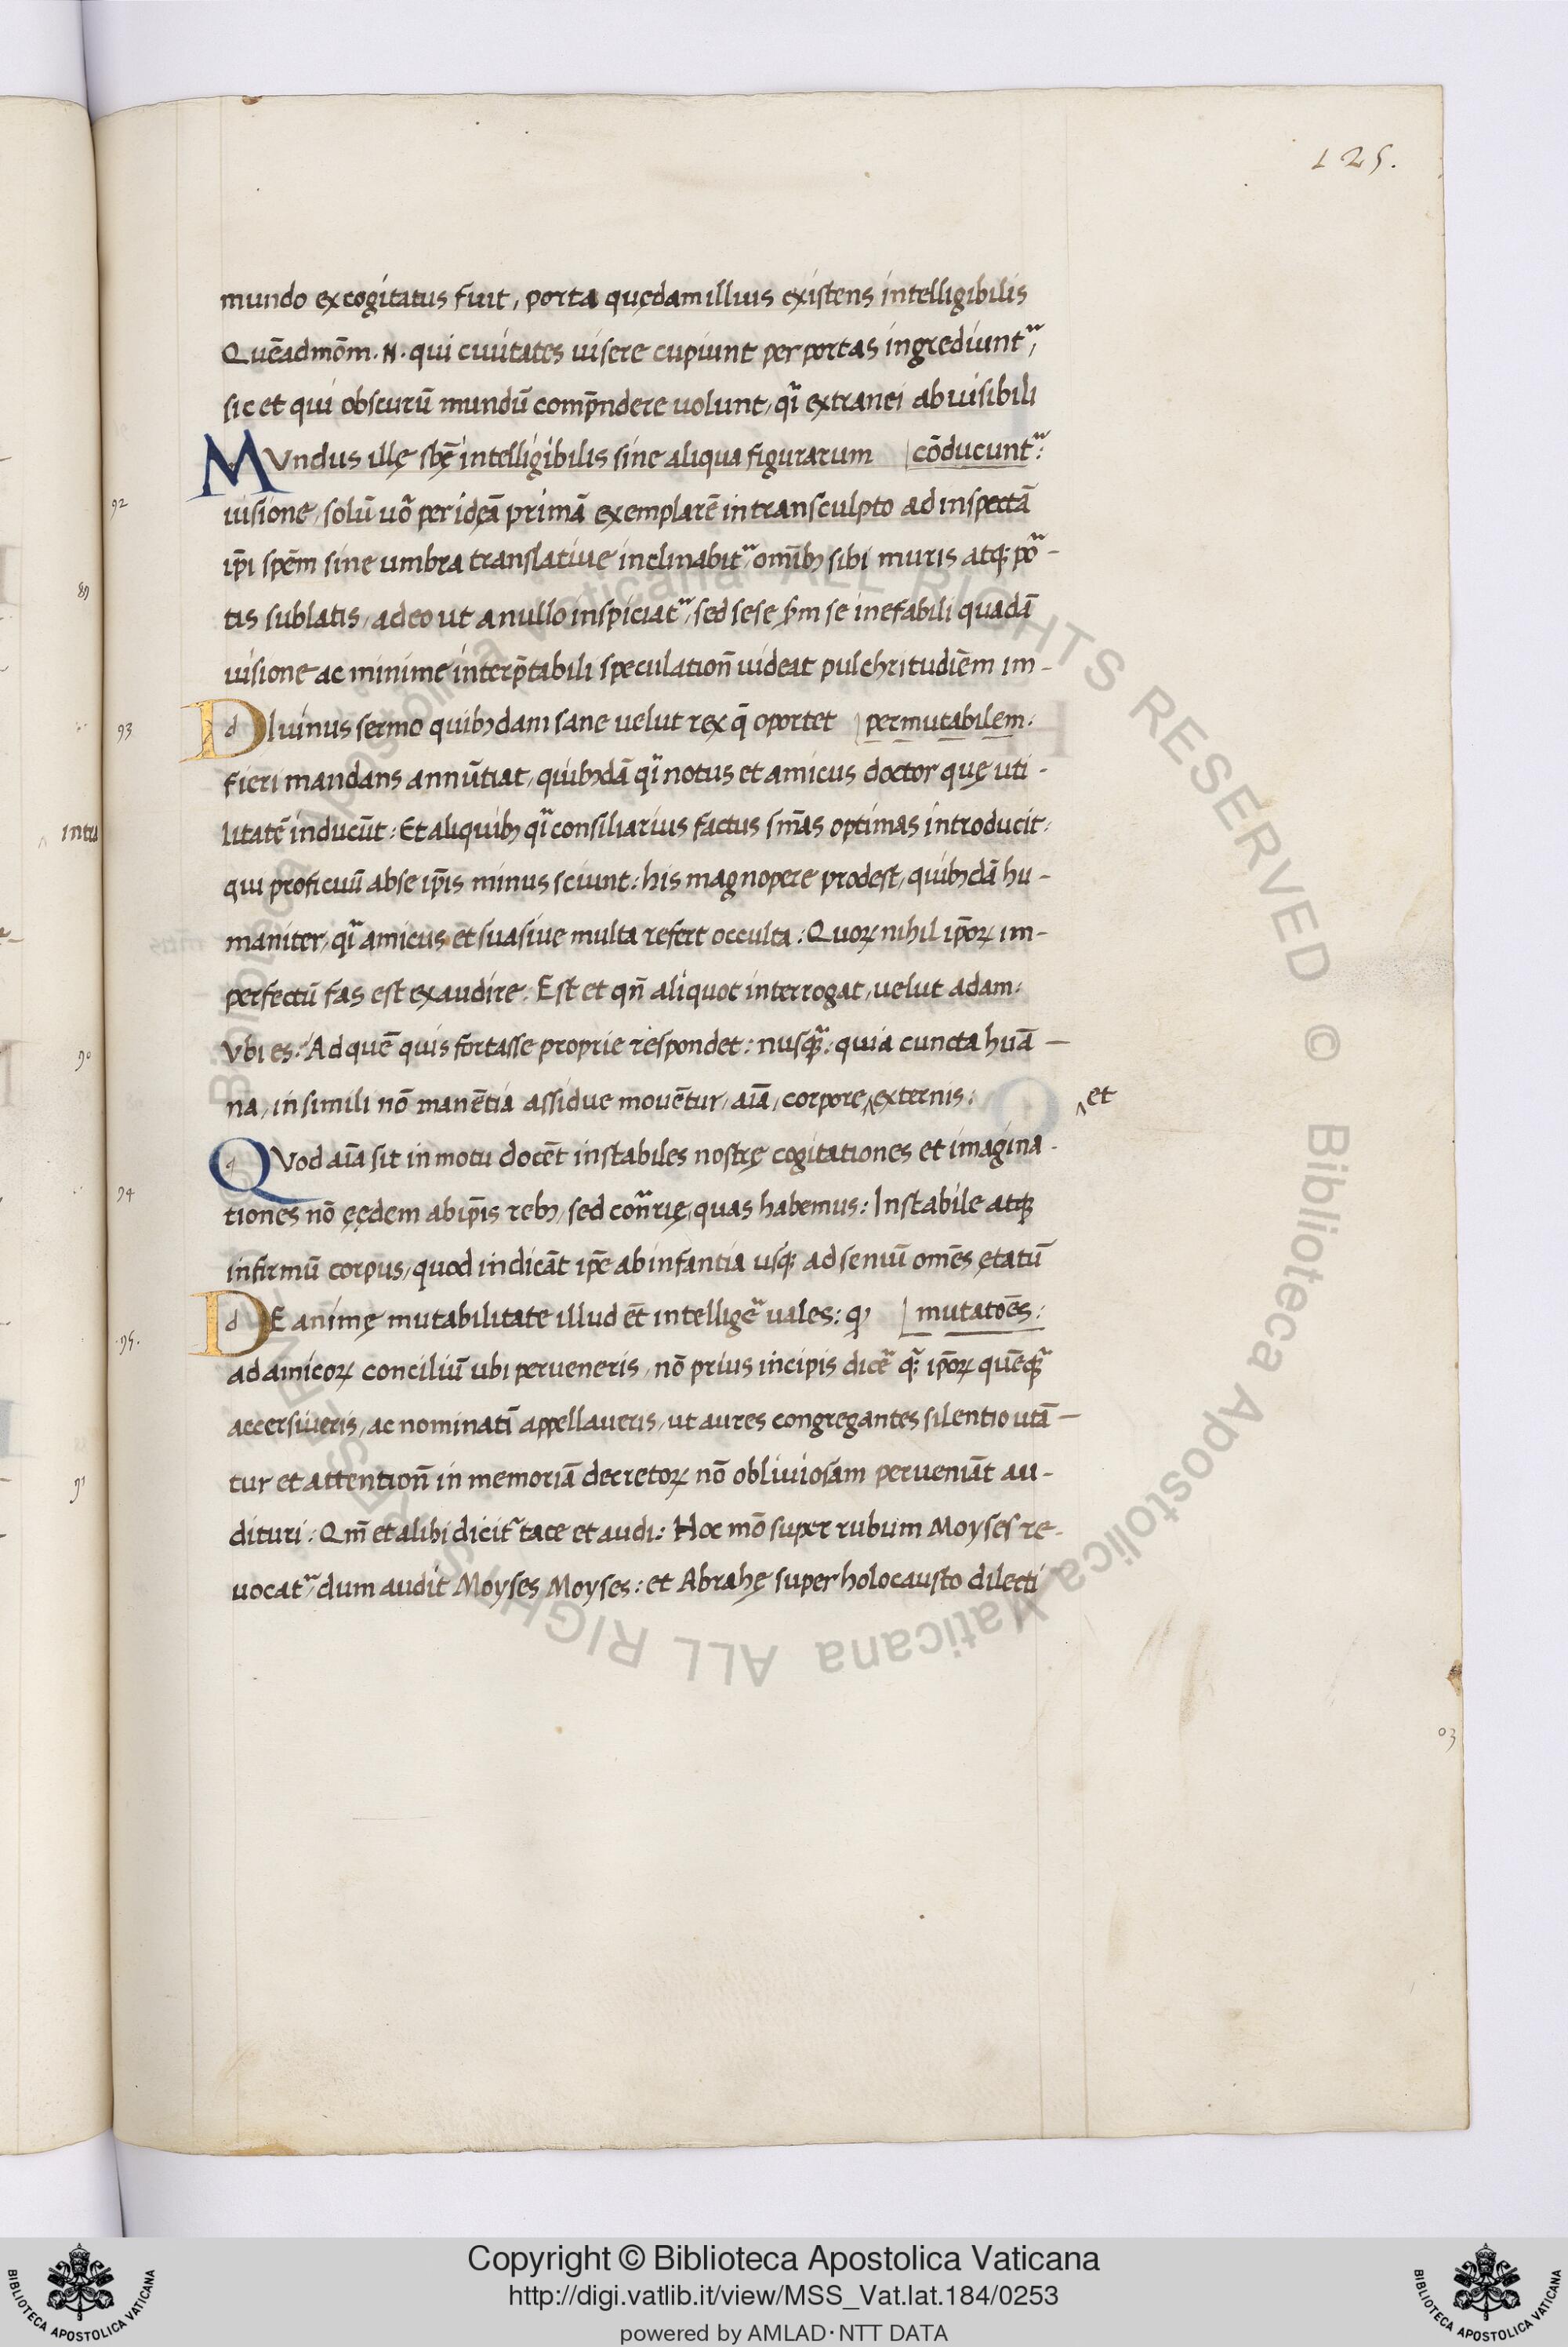 125.
mundo excogitatus fuit, porta quędam illius existens intelligibilis
Quēadmōm .N. qui ciuitates uisere cupiunt per portas ingrediuntᷓ,
sic et qui obscurū mundū comp̄ndere uolunt, qᷓi extranei ab uisibili
MVndus illę sbę̄ intelligibilis sine aliqua figurarum [cōducuntᷓ:
92
uisione, solū uō per idęā primā exemplarē in transculpto ad inspectā
ip̄i spēm sine umbra translatiue inclinabitᷓ omībꝫ sibi muris atqꝫ poᷓ-
tis sublatis, adeo ut a nullo inspiciatᷓ, sed sese sm̄ se inefabili quadā
uisione ac minime interp̄tabili speculatioñ uideat pulchritudiēm im-
DIuinus sermo quibꝫdam sane uelut rex q̄ oportet [permutabilem:
93
fieri mandans annūtiat, quibꝫdā qᷓi notus et amicus doctor quę uti-
litatē inducūt: Et aliquibꝫ qᷓi consiliarius factus sn̄ias optimas introducit:
qui proficuū ab se ip̄is minus sciunt: his magnopere prodest, quibꝫdā hu-
maniter, qᷓi amicus et suasiue multa refert occulta: Quoꝝ nihil ip̄oꝝ im-
perfectū fas est exaudire: Est et qn̄ aliquot interrogat, uelut adam:
Vbi es: Ad quē quis fortasse proprie respondet: nusqᷓ: quia cuncta huā-
na, in simili nō manētia assidue mouētur, aīa, corpore ‸ externis: ‸et
QVod aīa sit in motu docēt instabiles nostrę cogitationes et imagina-
94
tiones nō ęędem ab ip̄is rebꝫ, sed conᷓrię, quas habemus: Instabile atqꝫ
infirmū corpus, quod indicāt ip̄e ab infantia usqꝫ ad seniū om̄es ętatū
DE animę mutabilitate illud ēt intelligeᷓ uales: ꝙ [mutatōes:
.95.
ad amicoꝝ conciliū ubi perueneris, nō prius incipis diceᷓ qᷓ: ip̄oꝝ quēqᷓ
accersiueris, ac nominatī appellaueris, ut aures congregantes silentio utā-
tur et attentioñ in memoriā decretoꝝ nō obliuiosam perueniāt au-
dituri: Qm̄ et alibi dicitᷓ tace et audi: Hoc mō super rubum Moyses re-
uocatᷓ, dum audit Moyses Moyses: et Abrahę super holocausto dilecti
intu
90
91
03
Copyright © Biblioteca Apostolica Vaticana
http://digi.vatlib.it/view/MSS_Vat.lat.184/0253
powered by AMLAD·NTT DATA
BIBLIOTECA APOSTOLICA VATICANA
BIBLIOTECA APOSTOLICA VATICANA
© Biblioteca Apostolica Vaticana ALL RIGHTS RESERVED © Biblioteca Apostolica Vaticana ALL RIGHTS RESERVED